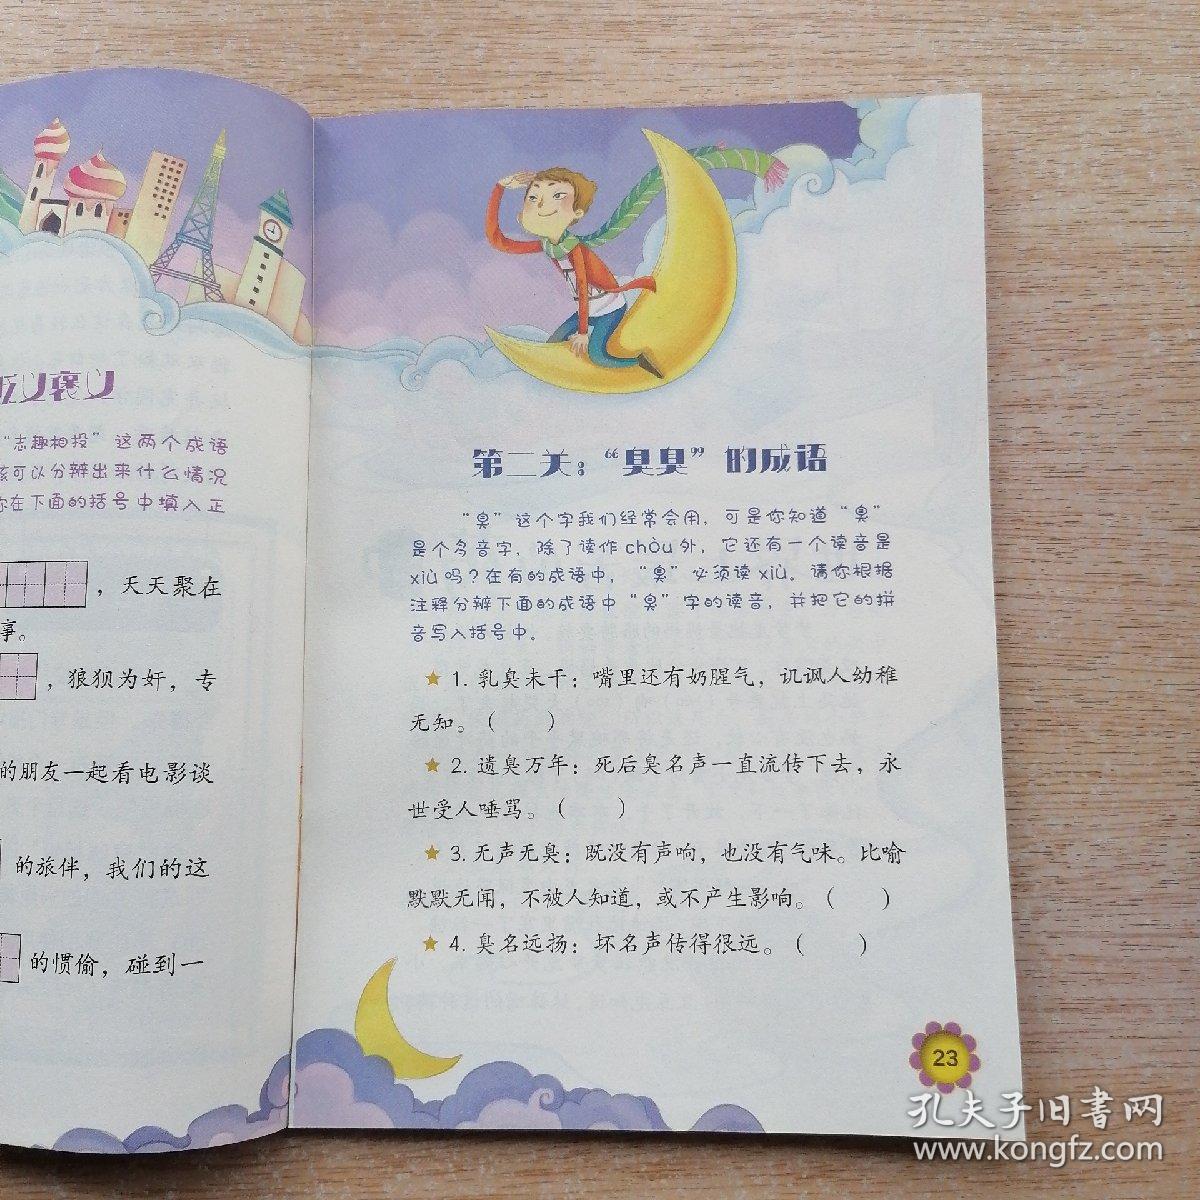 义褒义
“志趣相投”这两个成语
该可以分辨出来什么情况
你在下面的括号中填入正
，天天聚在
事。
，狼狈为奸，专
的朋友一起看电影谈
的旅伴，我们的这
的惯偷，碰到一
第二关：“臭臭”的成语
“臭”这个字我们经常会用，可是你知道“臭”
是个多音字，除了读作 chòu 外，它还有一个读音是
xiù 吗？在有的成语中，“臭”必须读 xiù。请你根据
注释分辨下面的成语中“臭”字的读音，并把它的拼
音写入括号中。
★ 1. 乳臭未干：嘴里还有奶腥气，讥讽人幼稚
无知。（　　）
★ 2. 遗臭万年：死后臭名声一直流传下去，永
世受人唾骂。（　　）
★ 3. 无声无臭：既没有声响，也没有气味。比喻
默默无闻，不被人知道，或不产生影响。（　　）
★ 4. 臭名远扬：坏名声传得很远。（　　）
23
孔夫子旧书网
www.kongfz.com